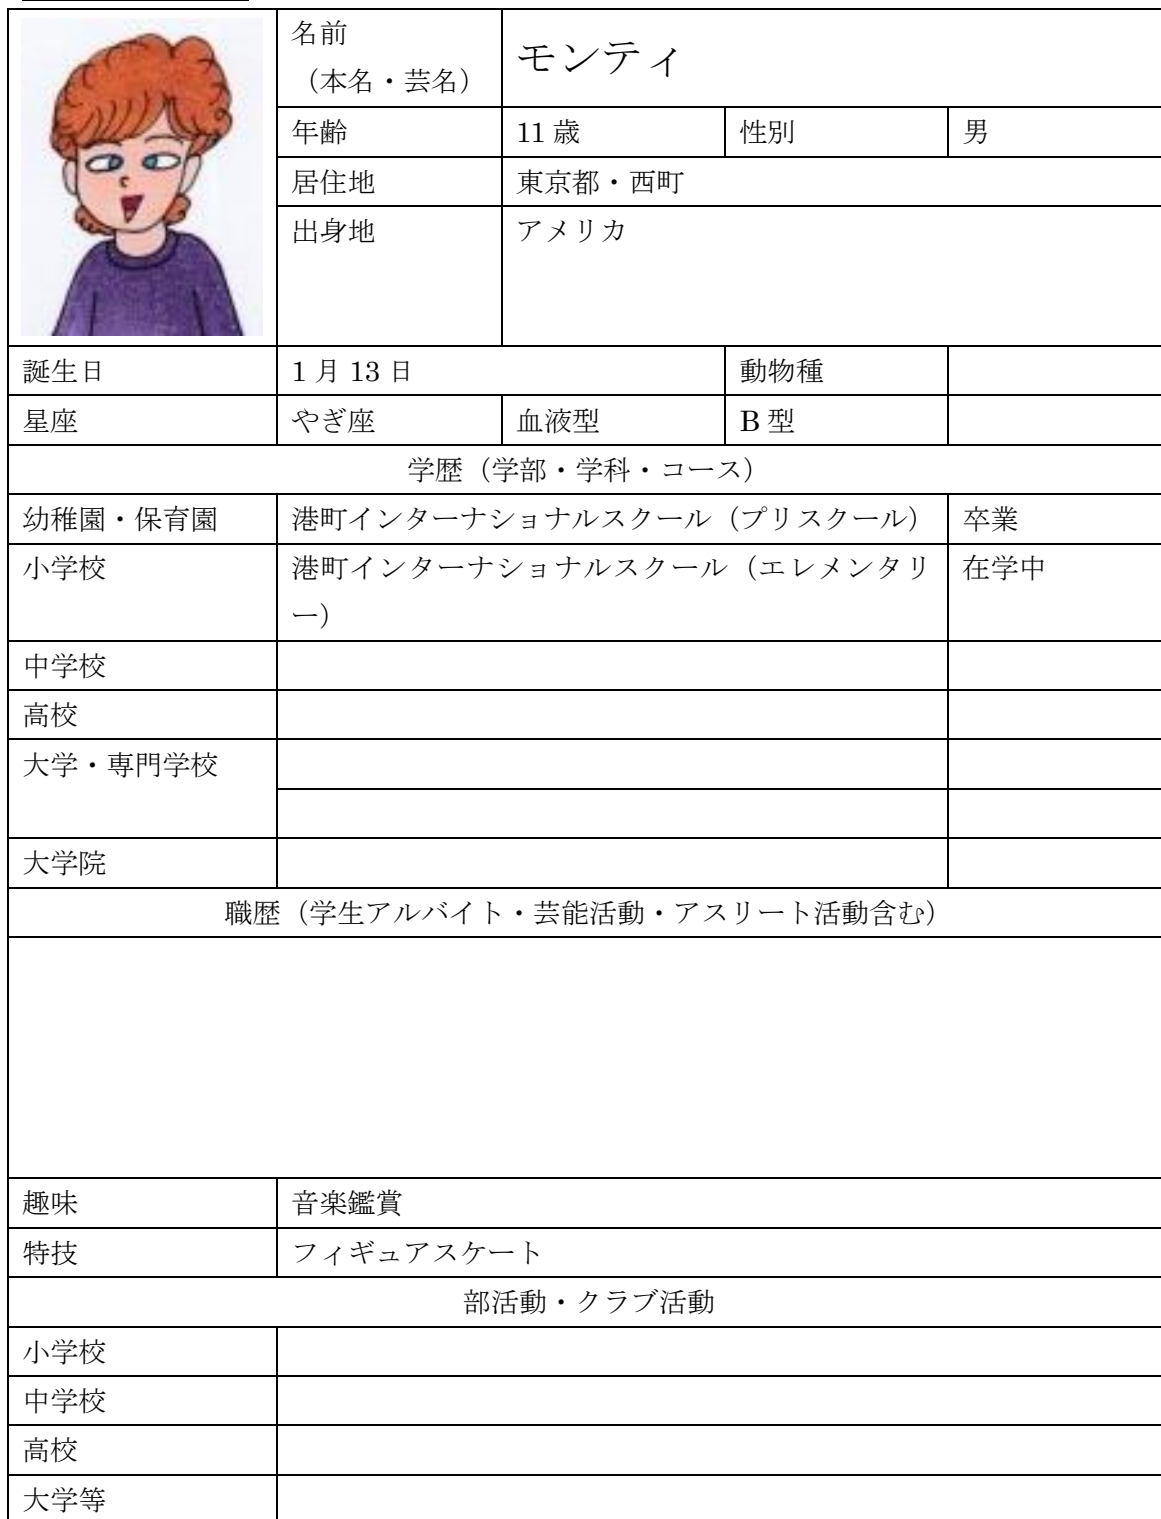 名前
（本名・芸名）
モンティ
年齢 11 歳 性別 男
居住地 東京都・西町
出身地 アメリカ
誕生日 1 月 13 日 動物種
星座 やぎ座 血液型 B 型
学歴（学部・学科・コース）
幼稚園・保育園 港町インターナショナルスクール（プリスクール） 卒業
小学校 港町インターナショナルスクール（エレメンタリ 在学中
ー）
中学校
高校
大学・専門学校
大学院
職歴（学生アルバイト・芸能活動・アスリート活動含む）
趣味 音楽鑑賞
特技 フィギュアスケート
部活動・クラブ活動
小学校
中学校
高校
大学等